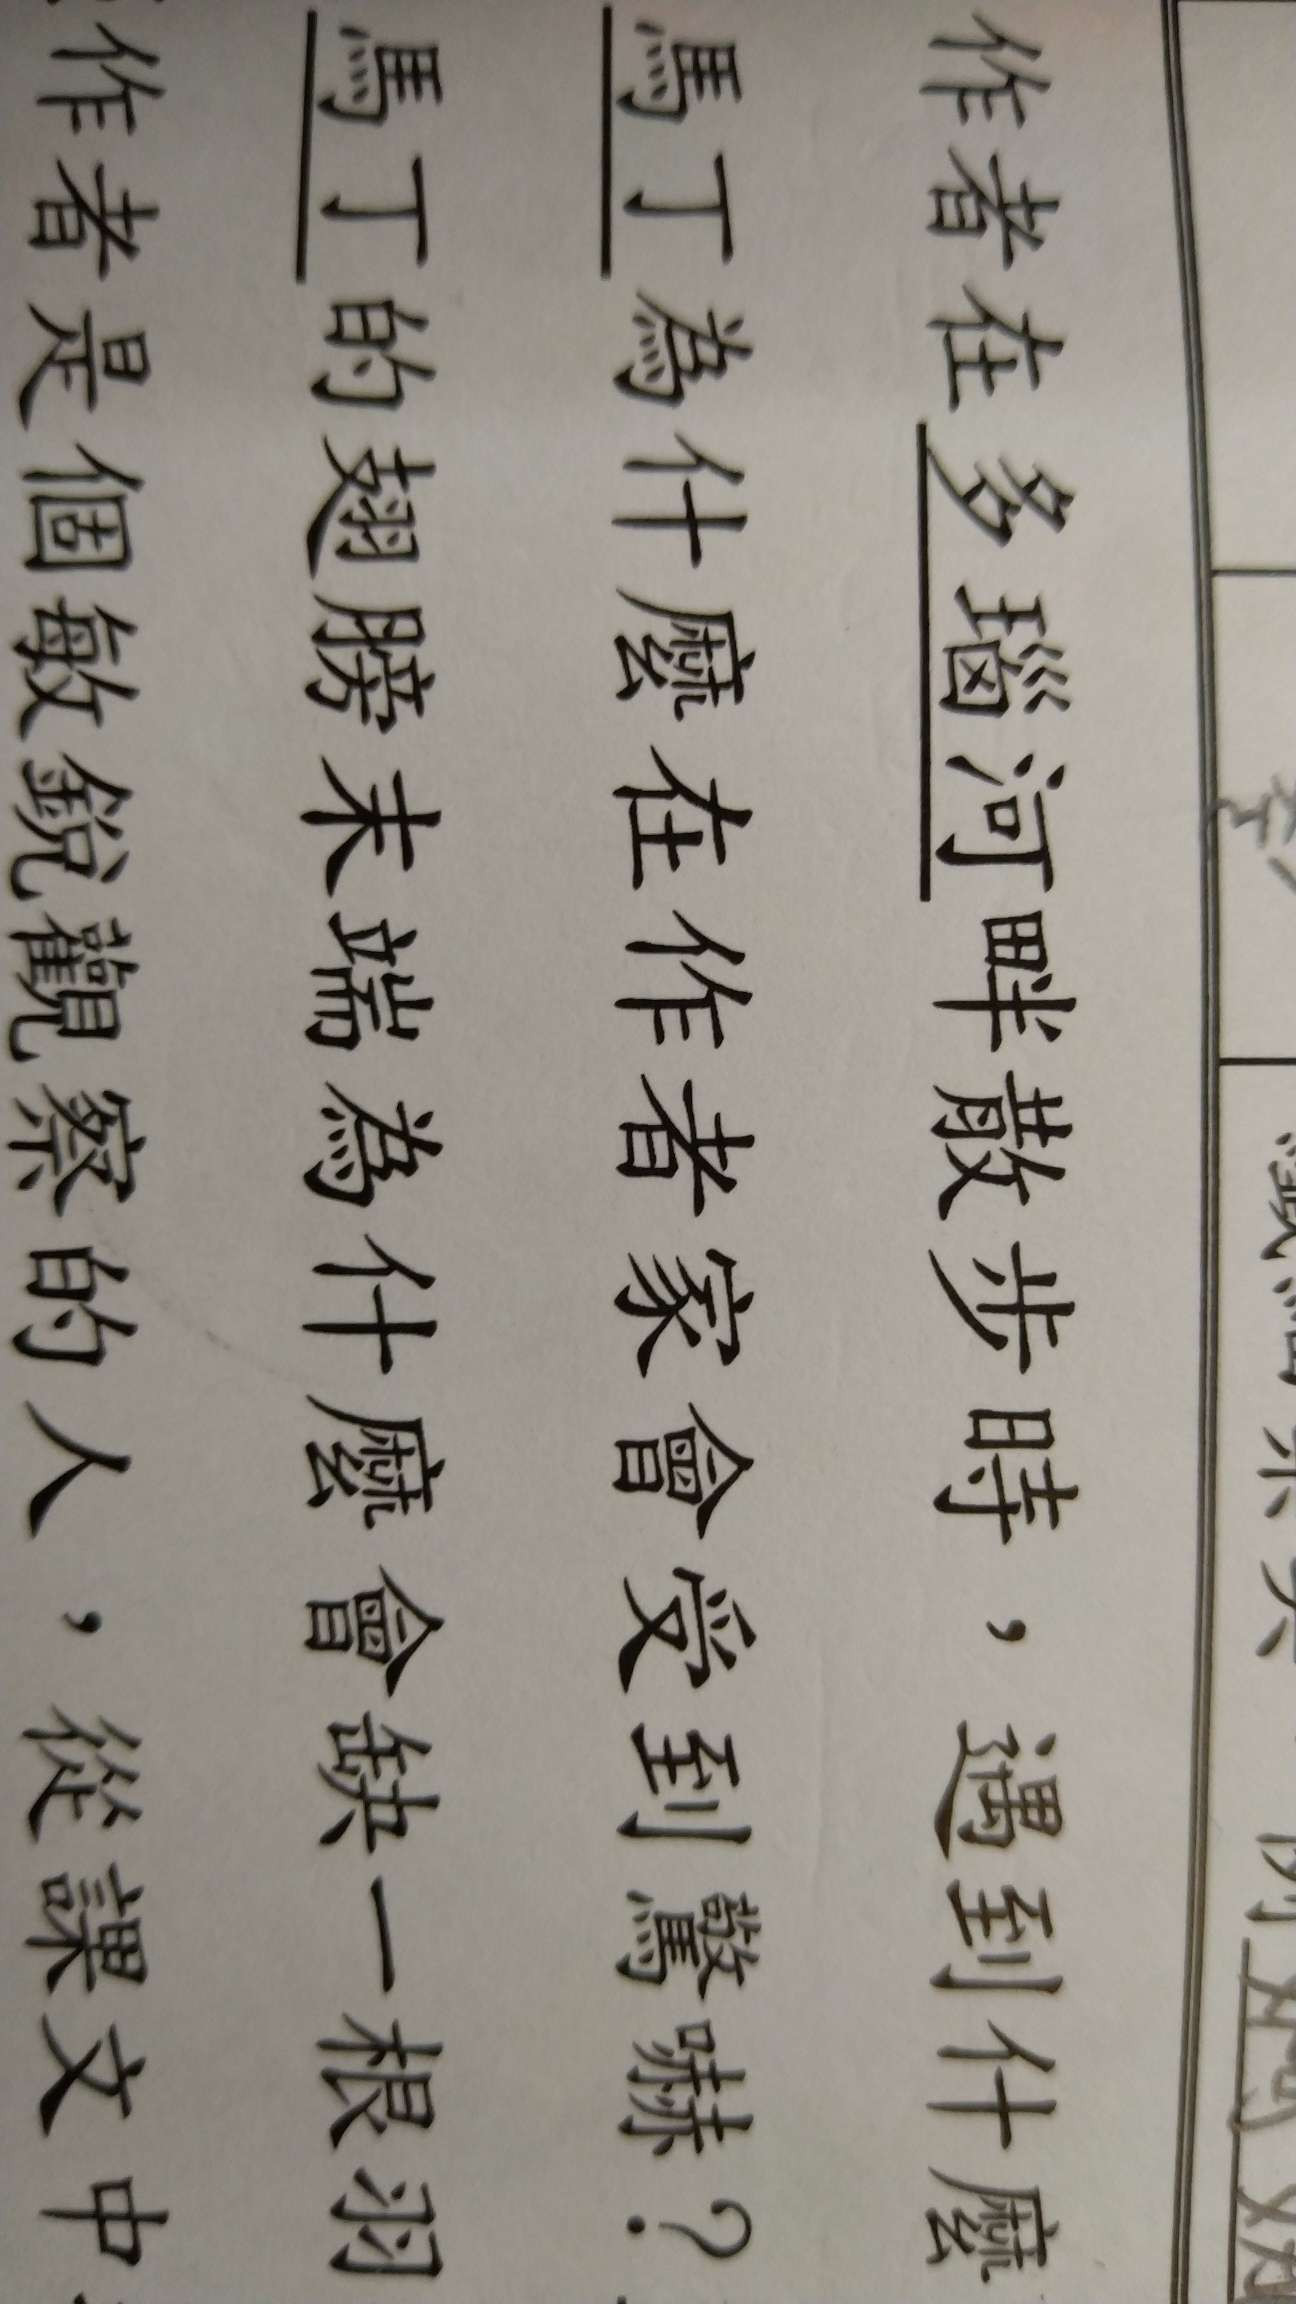 作者在多瑙河畔散步時，遇到什麼
馬丁為什麼在作者家會受到驚嚇？
馬丁的翅膀末端為什麼會缺一根羽
作者是個敏銳觀察的人，從課文中